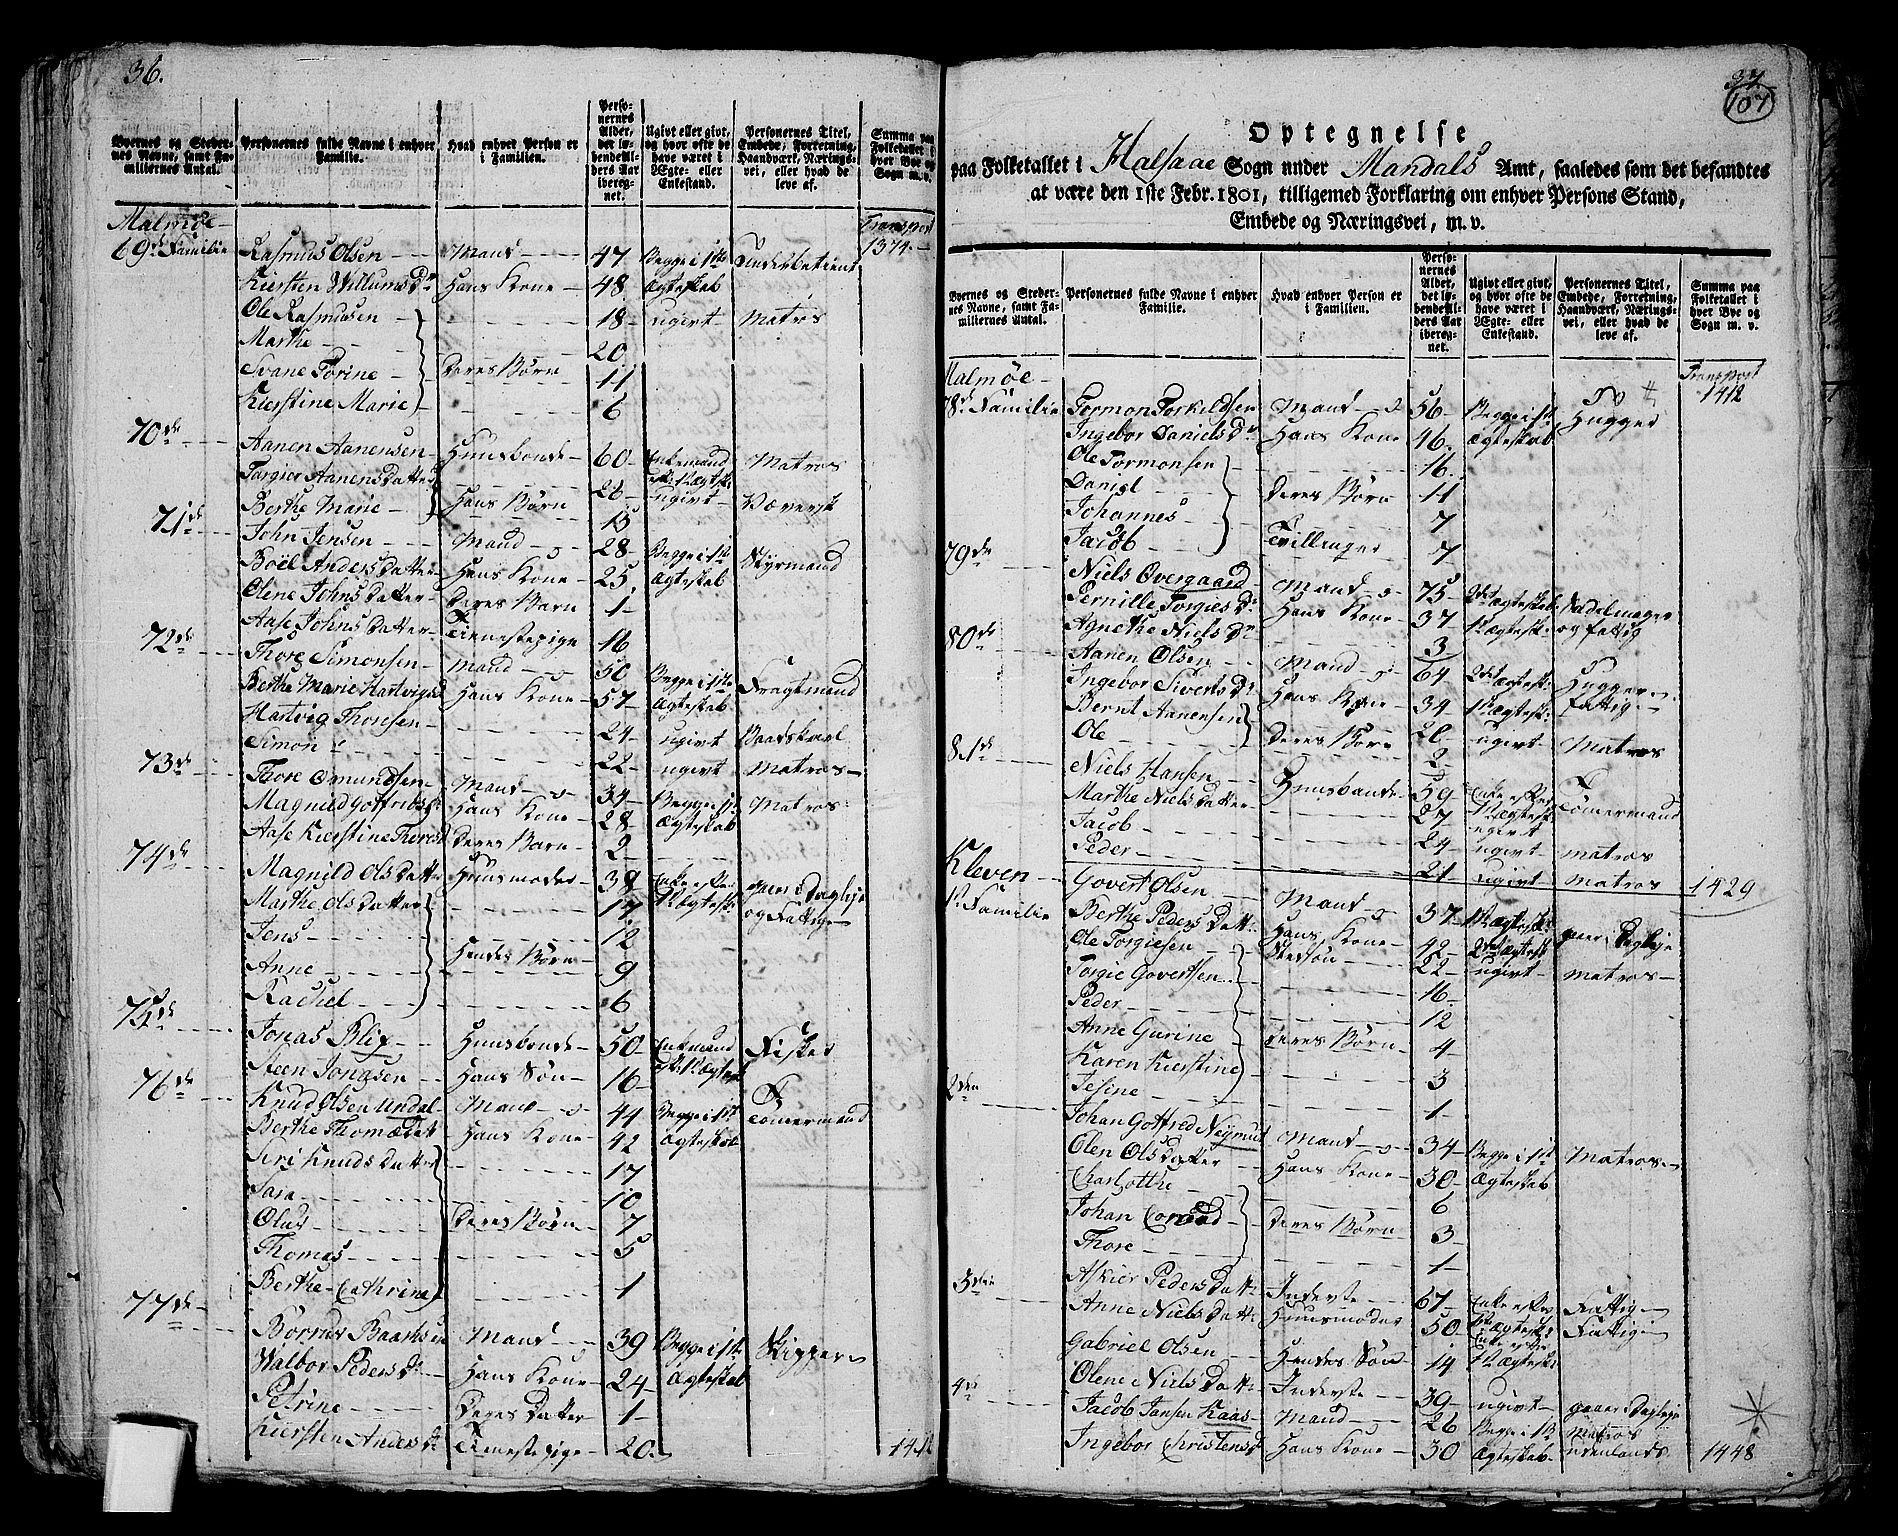 36.
Byernes og Stedernes Navne, samt Familiernes Antal. | Personernes fulde Navne i enhver Familie. | Hvad enhver Person er i Familien. | Personernes Alder, det løbende Alders Aar iberegnet. | Ugivt eller givt, og hvor ofte de have været i Ægte- eller Enkestand. | Personernes Titel, Embede, Forretning, Haandværk, Næringsvei, eller hvad de leve af. | Summa paa Folketallet i hver Bye og Sogn m. v.
Malmøe Transport
69de Familie Rasmus Olsen Mand 47 Begge i 1ste Underbetient 1374
Kiersten Willums Dr Hans Kone 48 Ægteskab
Ole Rasmusen 18 ugivt Matros
Marthe 20
Svane Torine Deres Børn 11
Kierstine Marie 6
70de Aanen Aanensen Huusbonde 60 Enkemand Matros
Torgier Aanens Datter 26 ugivt
Berthe Marie Hans Børn 15 Væversk
71de John Jensen Mand 28 Begge i 1ste Styrmand
Boël Anders Datter Hans Kone 25 Ægteskab
Olene Johns Datter Deres Barn 1
Aase Johns Datter Tienestepige 16
72de Thore Simonsen Mand 50 Begge i 1ste Fragtmand
Berthe Marie Hartvigsd Hans Kone 57 Ægteskab
Hartvig Thorsen 24 ugivt Baadskarl
Simon 22 ugivt Matros
73de Thore Omundsen Mand 34 Begge i 1ste Matros
Magnild Gotfrids Hans Kone 28 Ægteskab
Aase Kierstine Thores Deres Barn 2
74de Magnild Ols Datter Huusmoder 38 Enke efter gaaer i Dagleje
Marthe Ols Datter 14 1te Ægtesk: og Fattig
Jens 12
Anne Hendes Børn 9
Rachel 6
75de Jonas Blix Huusbonde 50 Enkemand Fisker
Steen Jonasen Hans Søn 16
76de Knud Olsen Undal Mand 44 Begge i 1ste Tømermand
Berthe Thomæ Datt Hans Kone 42 Ægteskab
Siri Knuds Datter 17
Sara 10
Oluf Deres Børn 7
Thomas 5
Berthe Cathrine 1
77de Børner Baarhsen Mand 39 Begge i 1ste Skipper
Walbor Peders Dr Hans Kone 24 Ægteskab
Petrine Deres Datter 1
Kiersten Anders Dr Tienestepige 20 1412
37
107
Optegnelse
paa Folketallet i Halsaae Sogn under Mandals Amt, saaledes som det befandtes
at være den 1ste Febr. 1801, tilligemed Forklaring om enhver Persons Stand,
Embede og Næringsvei, m. v.
Byernes og Stedernes Navne, samt Familiernes Antal. | Personernes fulde Navne i enhver Familie. | Hvad enhver Person er i Familien. | Personernes Alder, det løbende Alders Aar iberegnet. | Ugivt eller givt, og hvor ofte de have været i Ægte- eller Enkestand. | Personernes Titel, Embede, Forretning, Haandværk, Næringsvei, eller hvad de leve af. | Summa paa Folketallet i hver Bye og Sogn m. v.
Malmøe Transport
78de Familie Tormon Torkildsen Mand 56 Begge i 1ste Hugger 1412
Ingebor Daniels Dr Hans Kone 46 Ægteskab
Ole Tormonsen 16
Daniel Deres Børn 11
Johannes 7
Jacob Tvillinger 7
79de Niels Overgaard Mand 75 2det Ægteskab Sadelmager
Pernille Torgies Dr Hans Kone 37 1te Ægtesk: og fattig
Agnethe Niels Dr 3
80de Aanen Olsen Mand 64 2det Ægtesk: Hugger
Ingebor Siverts Dr Hans Kone 34 1te Ægtesk: fattig
Bernt Aanensen 20 ugivt Matros
Ole Deres Børn 2
81de Niels Hansen Huusbonde 59 Tømermand
Marthe Niels Datter 27 ugivt
Jacob 24 ugivt matros
Peder 21 ugivt matros 1429
Kleven
1te Familie Govert Olsen Mand 37 1te Ægtesk: gaaer i Dagleje
Berthe Peders Datt: Hans Kone 42 2det Ægtesk
Ole Torgiesen Stedsøn 22 ugivt matros
Torgie Govertsen 16
Peder 12
Anne Gurine Deres Børn 4
Karen Kierstine 3
Jesine 1
2den Johan Gotfred Neÿmut Mand 34 Begge i 1te Matros
Olen Ols Datter Hans Kone 30 Ægteskab
Charlotthe 6
Johan Conrad Deres Børn 3
Thore 1
3die Askier Peders Datt: Inderste 67 Enke efter Fattig
Anne Niels Datt: Huusmoder 50 1te Ægtesk: Fattig
Gabriel Olsen Hendes Søn 14
4de Olene Niels Datt: Inderste 39 ugivt gaaer i Dagleje
Jacob Jansen Kaas Mand 26 Begge i 1te Matros
Ingebor Christensd Hans Kone 30 Ægteskab udenlands 1448